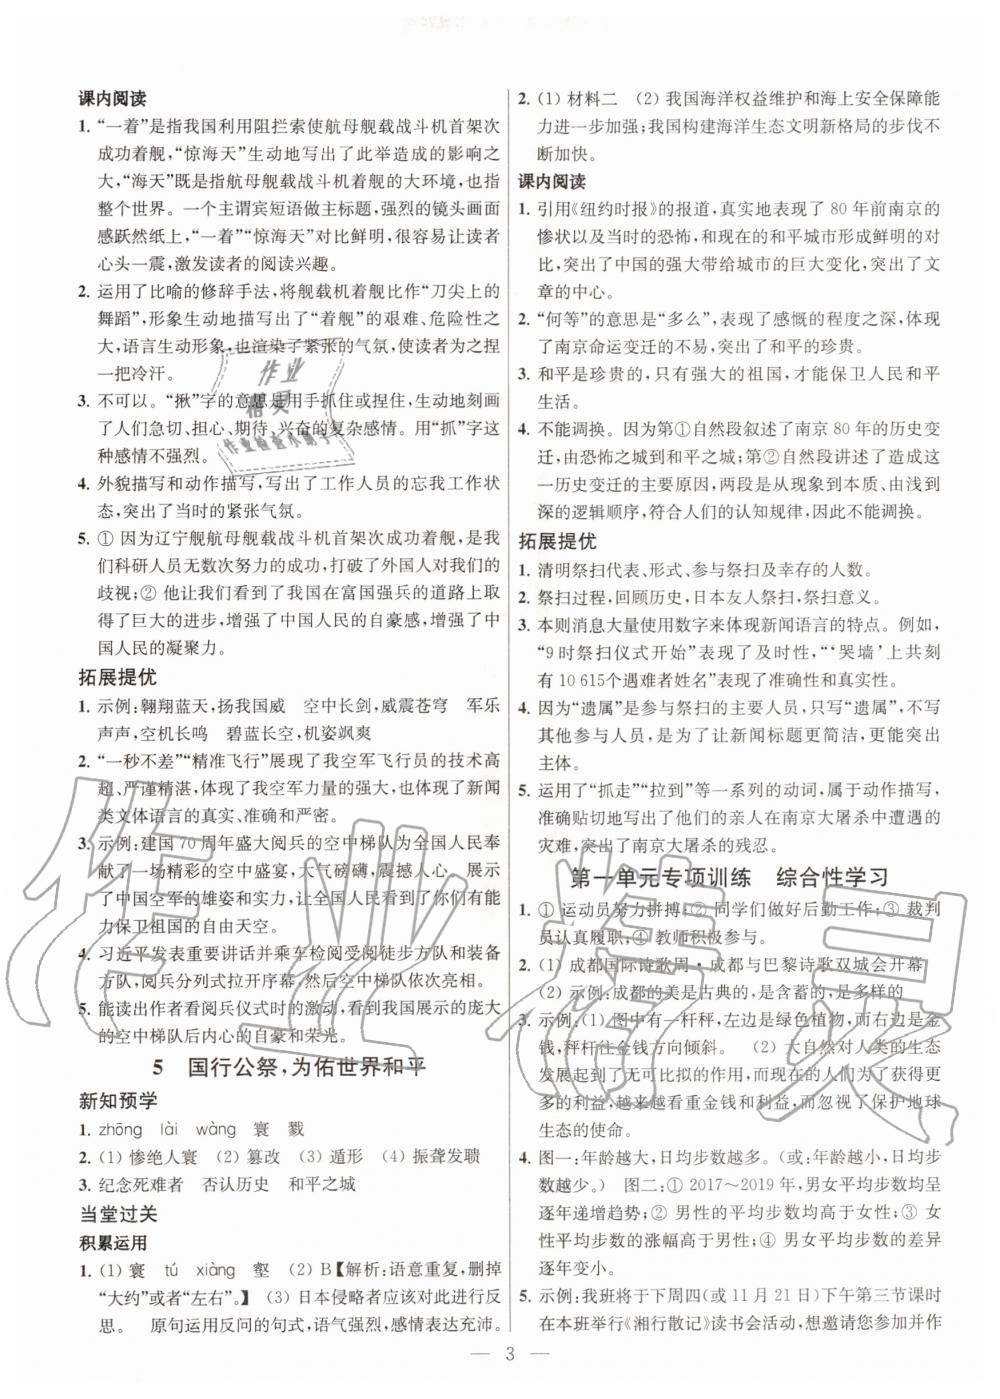 课内阅读
1. “一着”是指我国利用阻拦索使航母舰载战斗机首架次
成功着舰,“惊海天”生动地写出了此举造成的影响之
大,“海天”既是指航母舰载战斗机着舰的大环境,也指
整个世界。一个主谓宾短语做主标题,强烈的镜头画面
感跃然纸上,“一着”“惊海天”对比鲜明,很容易让读者
心头一震,激发读者的阅读兴趣。
2. 运用了比喻的修辞手法,将舰载机着舰比作“刀尖上的
舞蹈”,形象生动地描写出了“着舰”的艰难、危险性之
大,语言生动形象,也渲染了紧张的气氛,使读者为之捏
一把冷汗。
3. 不可以。“揪”字的意思是用手抓住或捏住,生动地刻画
了人们急切、担心、期待、兴奋的复杂感情。用“抓”字这
种感情不强烈。
4. 外貌描写和动作描写,写出了工作人员的忘我工作状
态,突出了当时的紧张气氛。
5. ① 因为辽宁舰航母舰载战斗机首架次成功着舰,是我
们科研人员无数次努力的成功,打破了外国人对我们的
歧视;② 他让我们看到了我国在富国强兵的道路上取
得了巨大的进步,增强了中国人民的自豪感,增强了中
国人民的凝聚力。
拓展提优
1. 示例:翱翔蓝天,扬我国威 空中长剑,威震苍穹 军乐
声声,空机长鸣 碧蓝长空,机姿飒爽
2. “一秒不差”“精准飞行”展现了我空军飞行员的技术高
超、严谨精湛,体现了我空军力量的强大,也体现了新闻
类文体语言的真实、准确和严密。
3. 示例:建国70周年盛大阅兵的空中梯队为全国人民奉
献了一场精彩的空中盛宴,大气磅礴,震撼人心。展现
了中国空军的强大,让全国人民看到了你们有能力
保卫祖国的自由天空。
4. 习近平发表重要讲话并乘车检阅受阅徒步方队和装备
方队,阅兵分列式拉开序幕,空中梯队依次亮相。
5. 能读出作者看阅兵仪式时的激动,看到我国展示的庞大
的空中梯队后内心的自豪和荣光。
5 国行公祭,为佑世界和平
新知预学
1. zhōng lài wàng 寰 戮
2. (1) 惨绝人寰 (2) 篡改 (3) 遁形 (4) 振聋发聩
3. 纪念死难者 否认历史 和平之城
当堂过关
积累运用
1. (1) 寰 tú xiàng 壑 (2) B【解析:语意重复,删掉
“大约”或者“左右”。】 (3) 日本侵略者应该对此进行反
思。 原句运用反问的句式,语气强烈,感情表达充沛。
2. (1) 材料二 (2) 我国海洋权益维护和海上安全保障能
力进一步加强;我国构建海洋生态文明新格局的步伐不
断加快。
课内阅读
1. 引用《纽约时报》的报道,真实地表现了80年前南京的
惨状以及当时的恐怖,和现在的和平城市形成鲜明的对
比,突出了中国的强大带给城市的巨大变化,突出了文
章的中心。
2. “何等”的意思是“多么”,表现了感慨的程度之深,体现
了南京命运变迁的不易,突出了和平的珍贵。
3. 和平是珍贵的,只有强大的祖国,才能保卫人民和平
生活。
4. 不能调换。因为第①自然段叙述了南京80年的历史变
迁,由恐怖之城到和平之城;第②自然段讲述了造成这
一历史变迁的主要原因,两段是从现象到本质、由浅到
深的逻辑顺序,符合人们的认知规律,因此不能调换。
拓展提优
1. 清明祭扫代表、形式、参与祭扫及幸存的人数。
2. 祭扫过程,回顾历史,日本友人祭扫,祭扫意义。
3. 本则消息大量使用数字来体现新闻语言的特点。例如,
“9时祭扫仪式开始”表现了及时性,“‘哭墙’上共刻
有10 615个遇难者姓名”表现了准确性和真实性。
4. 因为“遗属”是参与祭扫的主要人员,只写“遗属”,不写
其他参与人员,是为了让新闻标题更简洁,更能突出
主体。
5. 运用了“抓走”“拉到”等一系列的动词,属于动作描写,
准确贴切地写出了他们的亲人在南京大屠杀中遭遇的
灾难,突出了南京大屠杀的残忍。
第一单元专项训练 综合性学习
1. ① 运动员努力拼搏;② 同学们做好后勤工作;③ 裁判
员认真履职;④ 教师积极参与。
2. (1) 成都国际诗歌周·成都与巴黎诗歌双城会开幕
(2) 示例:成都的美是古典的,是含蓄的,是多样的
3. 示例:(1) 图中有一杆秤,左边是绿色植物,而右边是金
钱,秤杆往金钱方向倾斜。 (2) 大自然对人类的生态
发展起到了无可比拟的作用,而人们却为了获得更
多的利益,越来越看重金钱和利益,而忽视了保护地球
生态的使命。
4. 图一:年龄越大,日均步数越多。(或:年龄越小,日均步
数越少。) 图二:① 2017～2019年,男女平均步数均呈
逐年递增趋势;② 男性的平均步数均高于女性;③ 女
性平均步数的涨幅高于男性;④ 男女平均步数的差异
逐年变小。
5. 示例:我班将于下周四(或11月21日)下午第三节课时
在本班举行《湘行散记》读书会活动,想邀请您参加并作
— 3 —
作业
帮灵
作业检查小助手
作业精灵